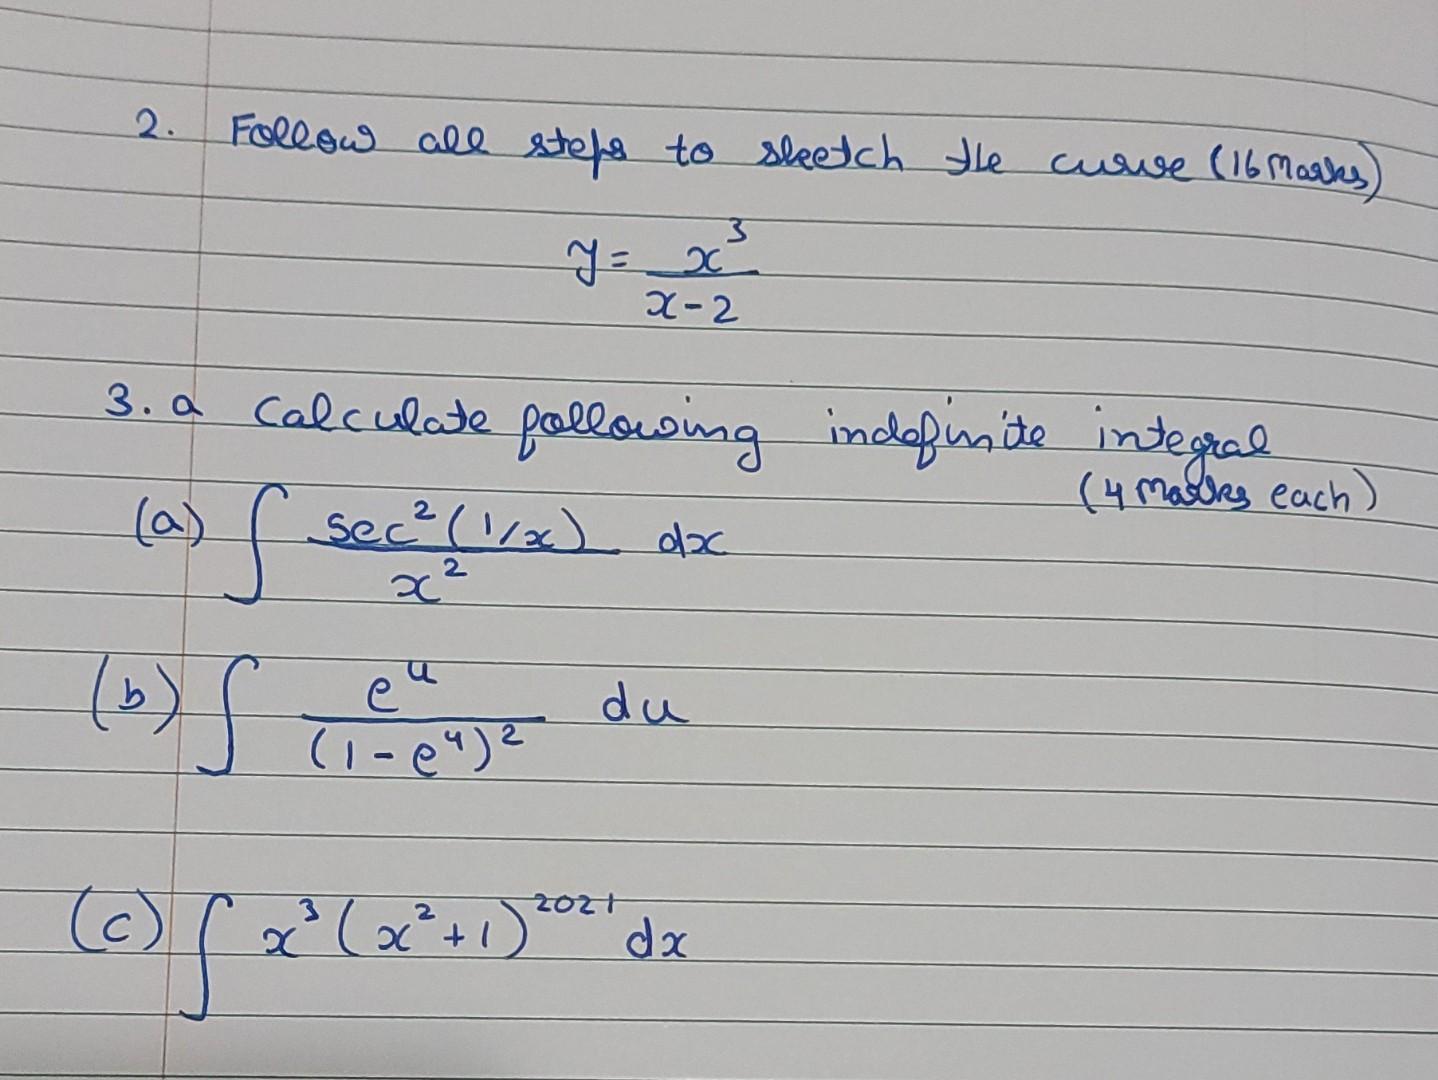 2. Follow all steps to sketch the curve (16 Marks)
y = x³ / x-2
3. a Calculate following indefinite integral
(4 Marks each)
(a) ∫ sec² (1/x) / x² dx
(b) ∫ eᵘ / (1-eᵘ)² du
(c) ∫ x³ (x²+1)²⁰²¹ dx